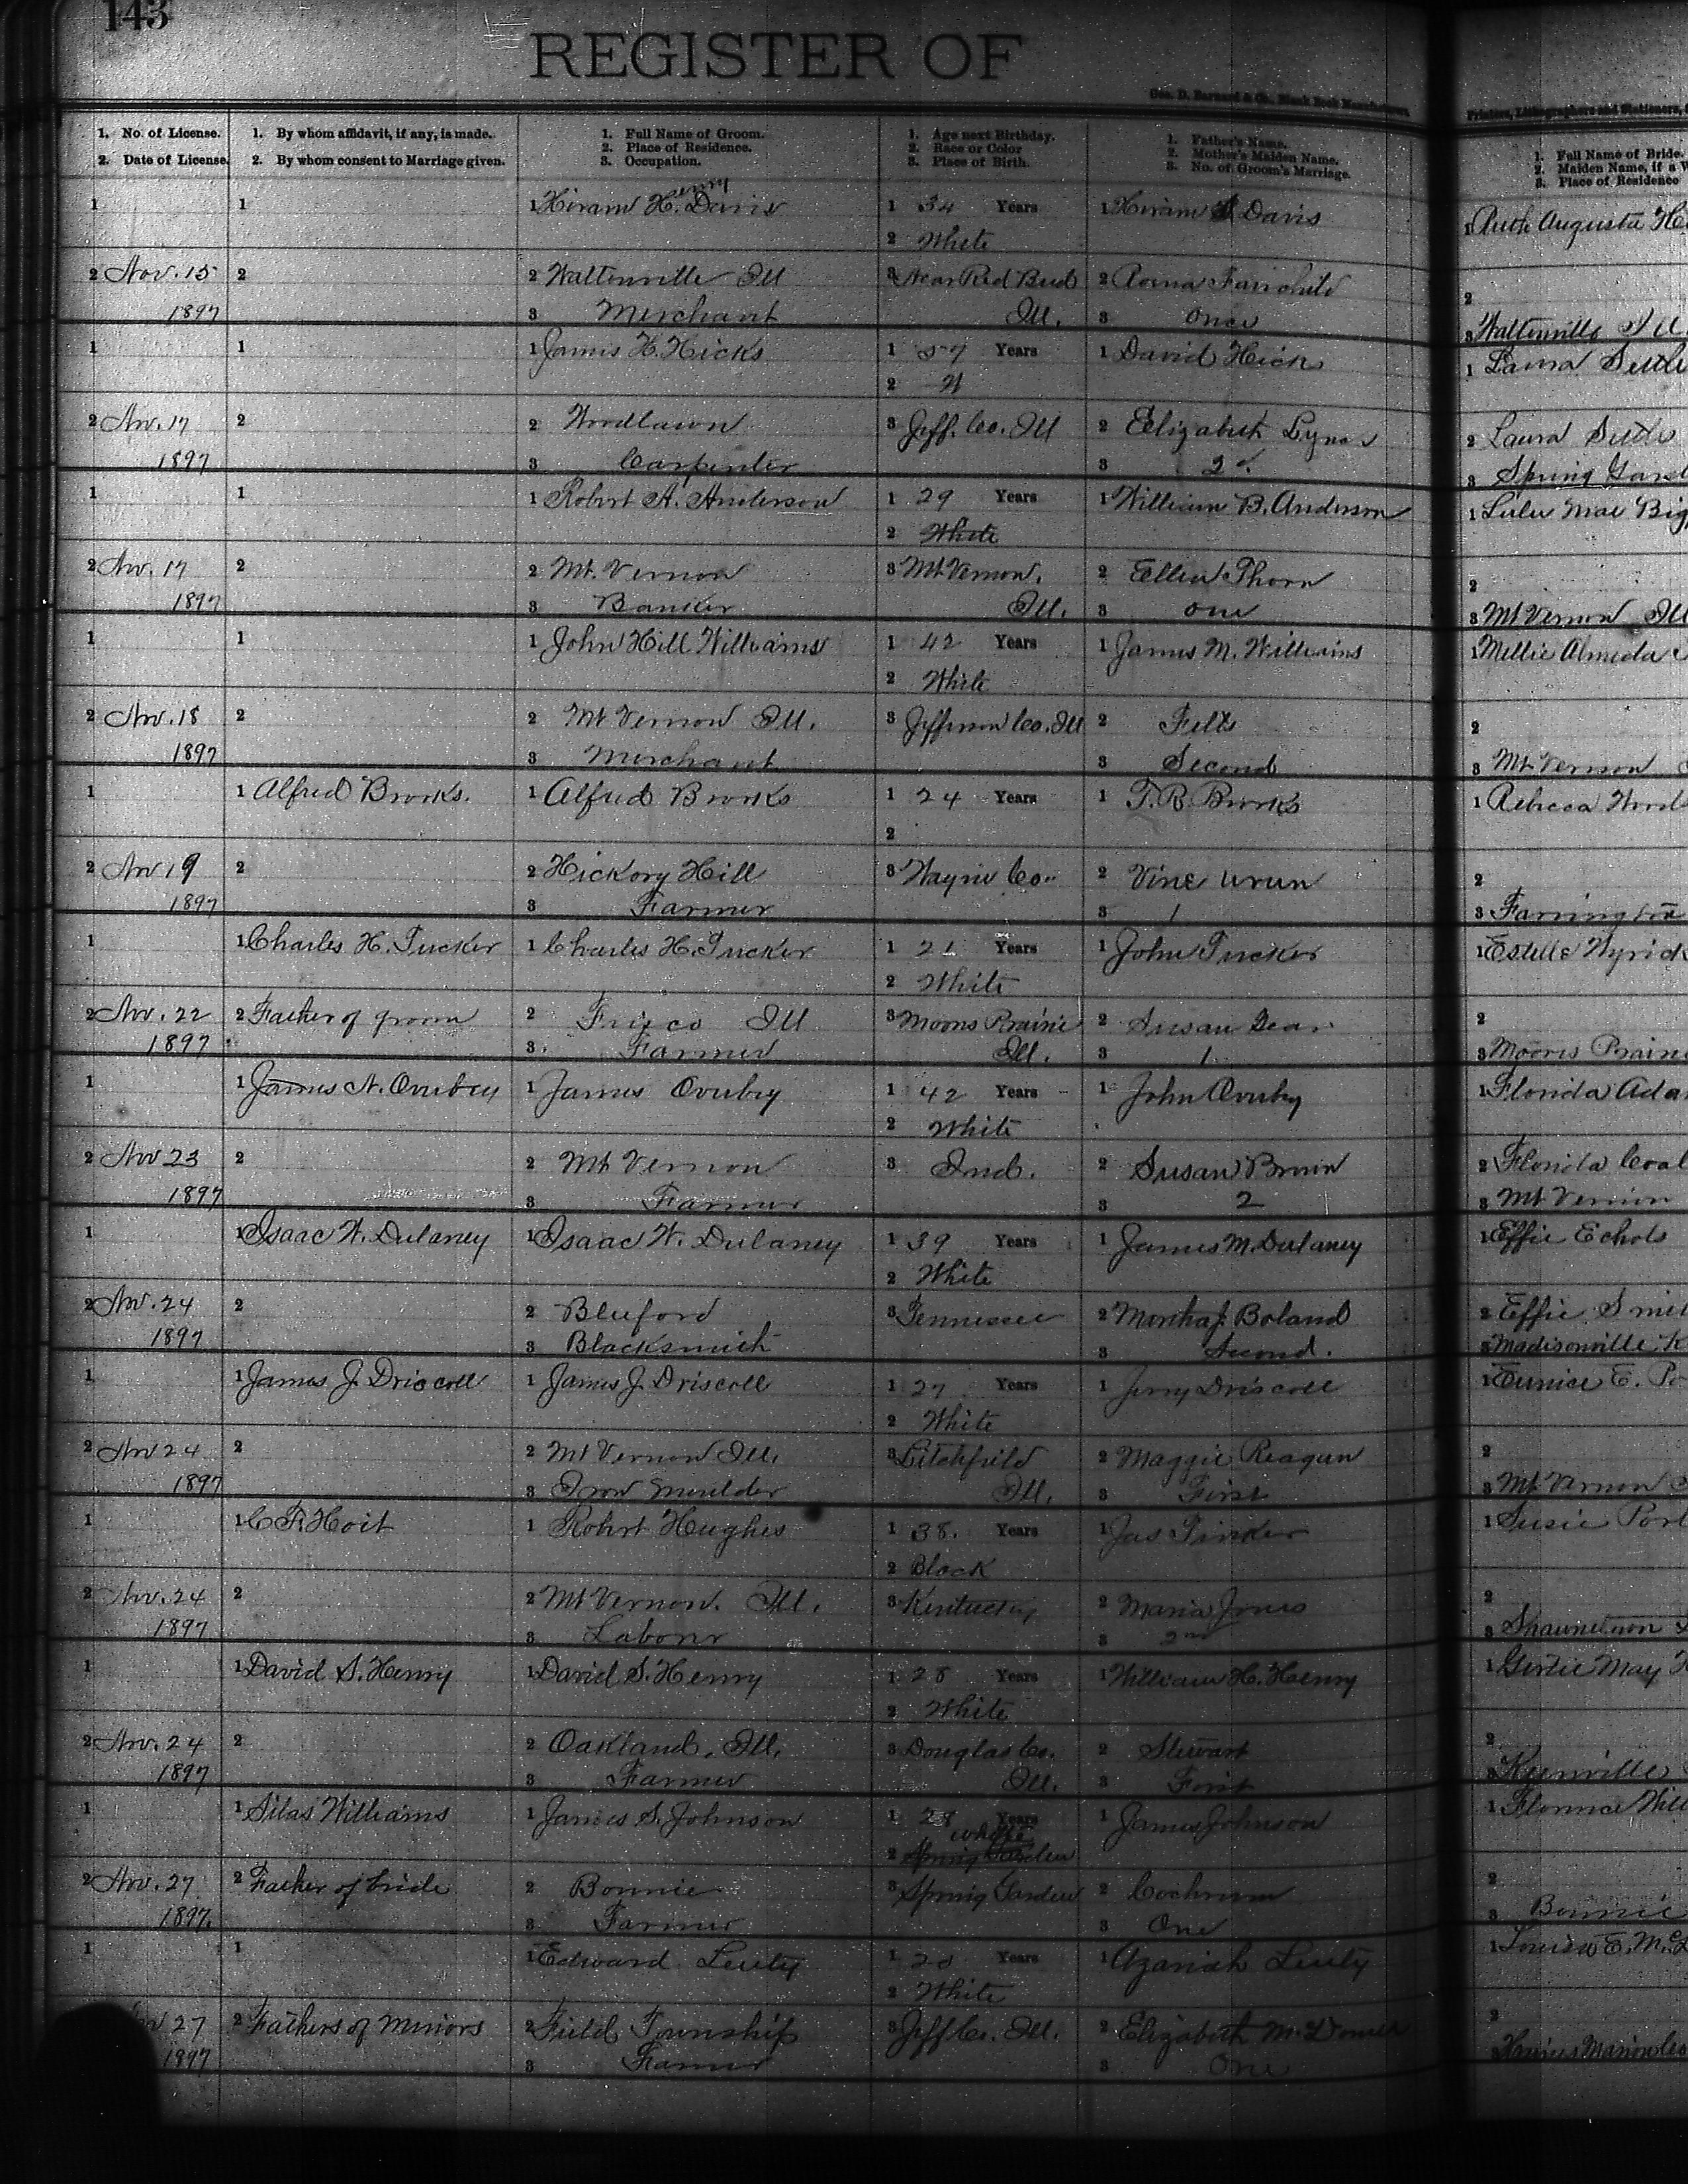 143
REGISTER OF
Geo. D. Barnard & Co., Blank Book Manufacturers,
Printers, Lithographers and Stationers,
1. No. of License.
2. Date of License.
1. By whom affidavit, if any, is made.
2. By whom consent to Marriage given.
1. Full Name of Groom.
2. Place of Residence.
3. Occupation.
1. Age next Birthday.
2. Race or Color
3. Place of Birth.
1. Father's Name.
2. Mother's Maiden Name.
3. No. of Groom's Marriage.
1. Full Name of Bride.
2. Maiden Name, if a W
3. Place of Residence
1 1 1 Hiram H.enry Davis 1 34 Years 1 Hiram Davis 1 Ruth Augusta
2 White
2 Nov. 15 2 2 Waltonville Ill 3 Near Red Bud 2 Roma Fairchild 2
1897 3 Merchant Ill. 3 once 3 Waltonville Ill.
1 1 1 James H. Hicks 1 57 Years 1 David Hicks 1 Laura Settle
2 W
2 Nov. 17 2 2 Woodlawn 3 Jeff. Co. Ill 2 Elizabeth 2 Laura
1897 3 Carpenter 3 2d. 3 Spring Gard
1 1 1 Robert A. Anderson 1 29 Years 1 William B. Anderson 1 Lulu Mae Big
2 White
2 Nov. 17 2 2 Mt. Vernon 3 Mt Vernon, 2 Ellen Thorn 2
1897 3 Banker Ill. 3 one 3 Mt Vernon Ill
1 1 1 John Hill Williams 1 42 Years 1 James M. Williams 1 Millie Almeda
2 White
2 Nov. 18 2 2 Mt Vernon Ill. 3 Jefferson Co. Ill 2 Felts 2
1897 3 Merchant 3 Second 3 Mt Vernon
1 1 Alfred Brooks. 1 Alfred Brooks 1 24 Years 1 T. R. Brooks 1 Rebecca Wood
2
2 Nov 19 2 2 Hickory Hill 3 Wayne Co. 2 Vine 2
1897 3 Farmer 3 1 3 Farrington
1 1 Charles H. Tucker 1 Charles H. Tucker 1 21 Years 1 John Tucker 1 Estelle Wyrick
2 White
2 Nov. 22 2 Father of groom 2 Frisco Ill 3 Moores Prairie 2 Susan Gear 2
1897 3. Farmer Ill. 3 1. 3 Moores Prairie
1 1 James N. Overbey 1 James Overby 1 42 Years 1 John Overby 1 Florida Ada
2 White
2 Nov 23 2 2 Mt Vernon 3 Ind. 2 Susan Brown 2 Florida
1897 3 Farmer 3 2 3 Mt Vernon
1 1 Isaac W. Dulaney 1 Isaac W. Dulaney 1 39 Years 1 James M. Dulaney 1 Effie Echols
2 White
2 Nov. 24 2 2 Bluford 3 Tennessee 2 Boland 2 Effie Smit
1897 3 Blacksmith 3 Second. 3 Madisonville K
1 1 James J. Driscoll 1 James J. Driscoll 1 27 Years 1 Jerry Driscoll 1 Eunice E. Po
2 White
2 Nov 24 2 2 Mt Vernon Ill. 3 Litchfield 2 Maggie Reagan 2
1897 3 Iron Moulder Ill. 3 First 3 Mt Vernon
1 1 C F. Hoit 1 Robert Hughes 1 38. Years 1 Jas Tinker 1 Susie Port
2 Black
2 Nov. 24 2 2 Mt Vernon. Ill. 3 Kentucky 2 Maria Jones 2
1897 3 Laborer 3 2nd 3 Shawnetown
1 1 David S. Henry 1 David S. Henry 1 28 Years 1 William H. Henry 1 Gertie May
2 White
2 Nov. 24 2 2 Oakland, Ill. 3 Douglas Co. 2 Stewart 2
1897 3 Farmer Ill. 3 First 3 Keenville
1 1 Silas Williams 1 James S. Johnson 1 28 Years 1 James Johnson 1 Florence Will
white
2 Spring Garden
2 Nov. 27 2 Father of bride 2 Bonnie 3 Spring Garden 2 Cochrum 2
1897. 3 Farmer 3 One 3 Bonnie
1 1 1 Edward Lesty 1 20 Years 1 Azariah Lesty 1 Louisa E. Mc
2 White
27 2 Fathers of Minors 2 Field Township 3 Jeff Co. Ill. 2 Elizabeth 2
1897 3 Farmer 3 One 3 Marion Co